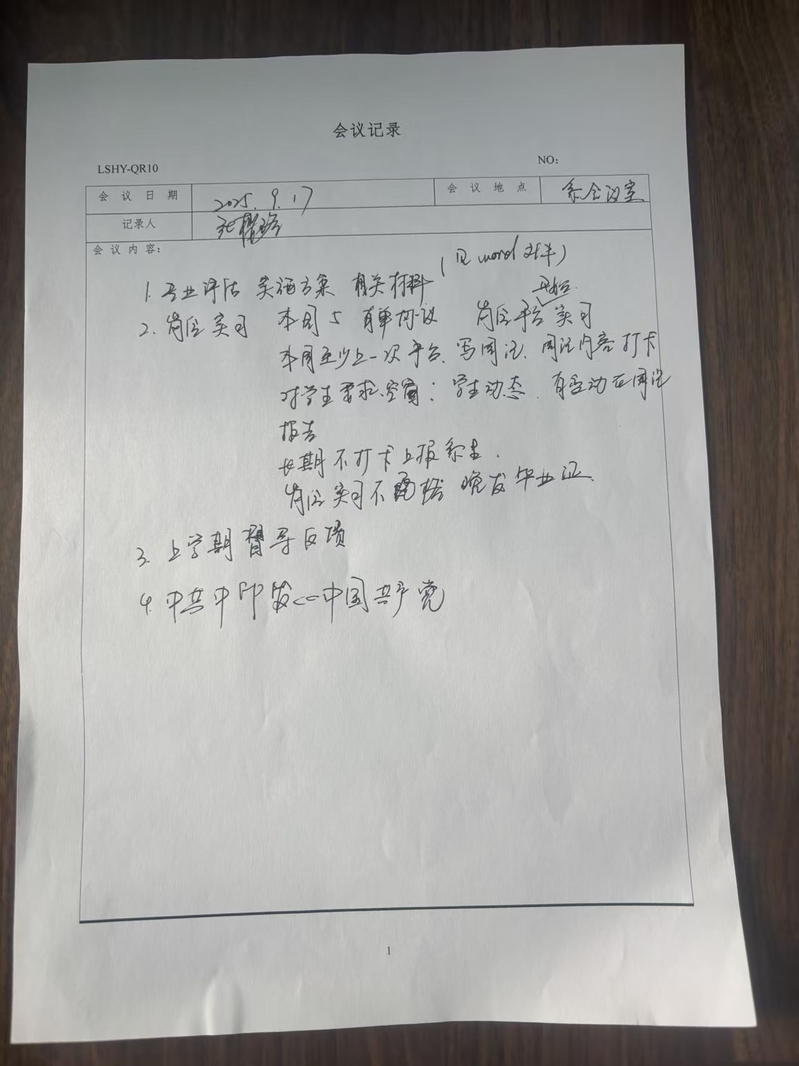 会议记录
LSHY-QR10 NO:
会议日期 2025.9.17 会议地点 系会议室
记录人
会议内容:
(见word文件)
1. 专业评估 实施方案 有关材料
开始
2. 岗位实习 本周5 有单协议 岗位平台实习
本周至少上一次平台、写周记、周记内容 打卡
对学生要求: 学生动态、有变动在周记
报告
长期不打卡上报系主.
岗位实习不 晚发毕业证.
3. 上学期督导反馈
4. 中共中印发<<中国共产党
1